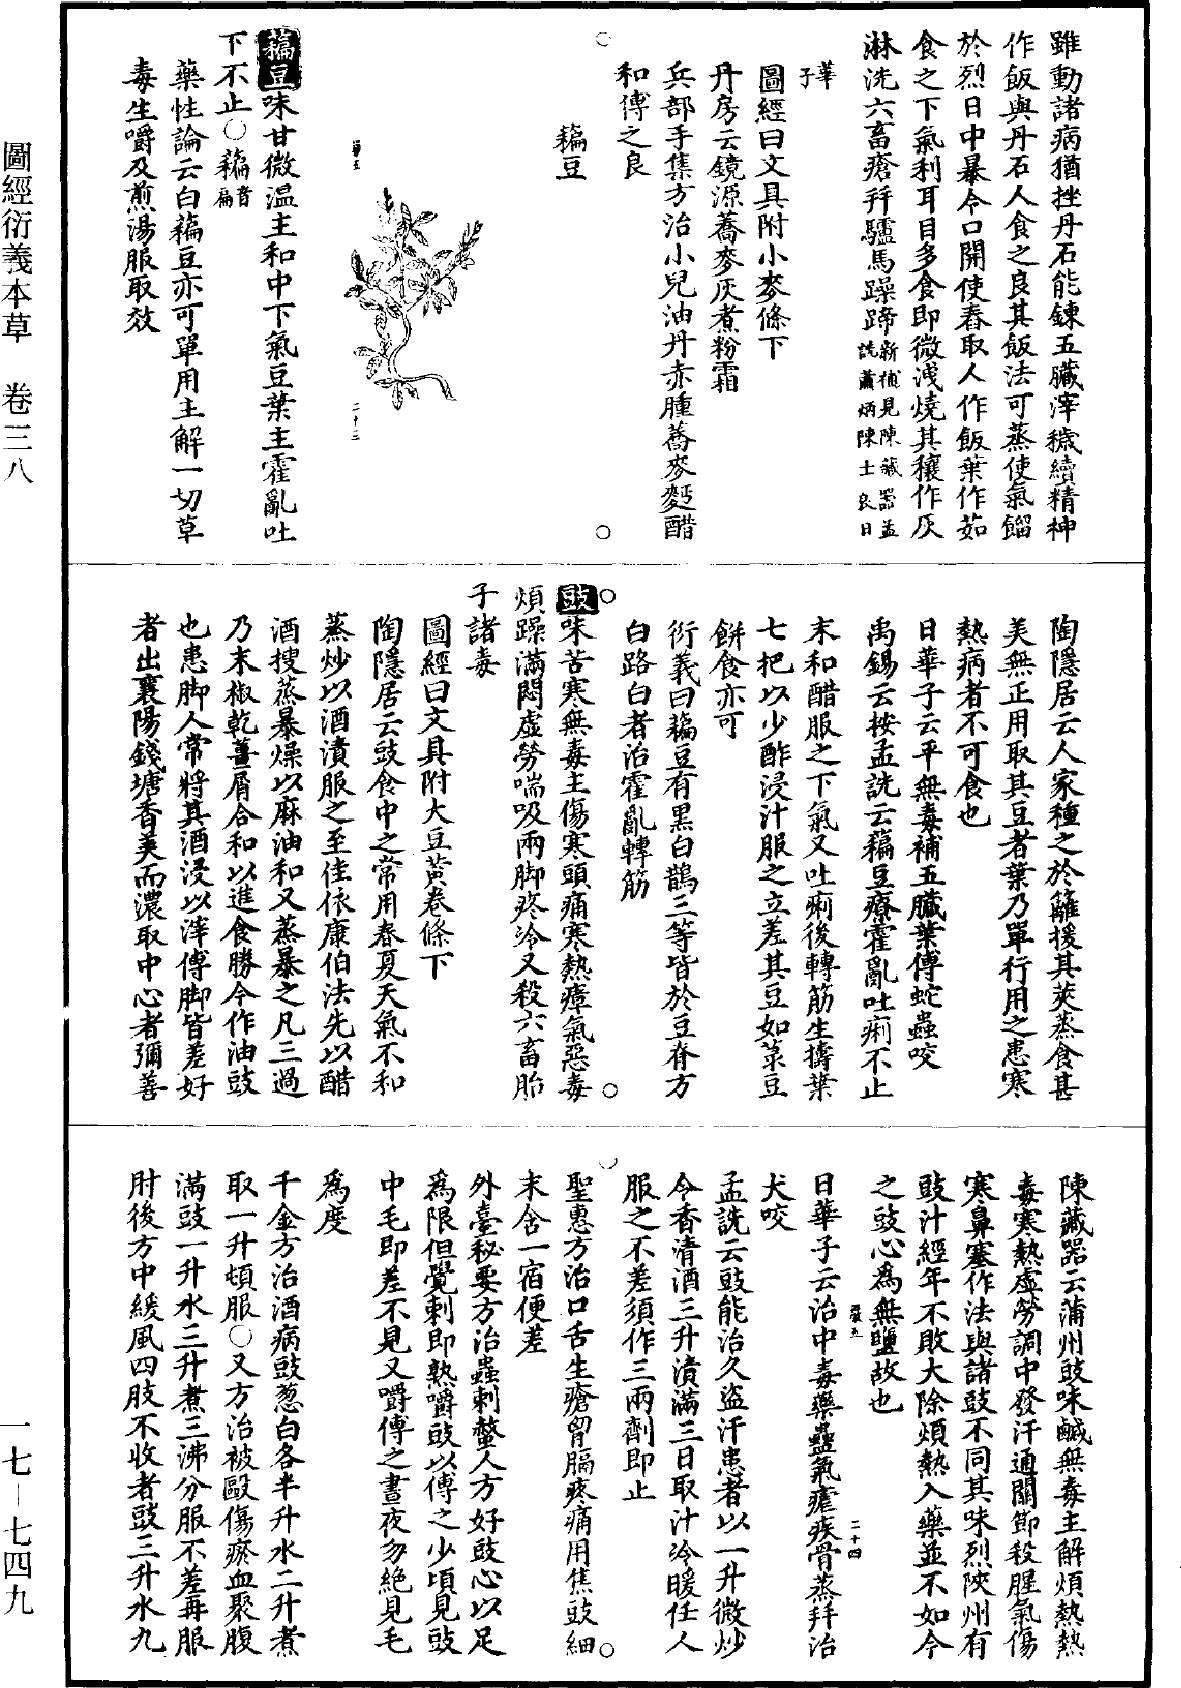 雖動諸病猶挫丹石能鍊五臟滓穢續精神
作飯與丹石人食之良其飯法可蒸使氣餾
於烈日中暴令口開使舂取人作飯葉作茹
食之下氣利耳目多食即微洩燒其穰作灰
淋洗六畜瘡幷驢馬躁蹄新補見陳藏器孟
詵蕭炳陳士良日
華
子
圖經曰文具附小麥條下
丹房云鏡源蕎麥灰煮粉霜
兵部手集方治小兒油丹赤腫蕎麥麪醋
和傅之良
藊豆
二十三
藊豆味甘微溫主和中下氣豆葉主霍亂吐
下不止○藊音
扁
藥性論云白藊豆亦可單用主解一切草
毒生嚼及煎湯服取效
陶隱居云人家種之於籬援其莢蒸食甚
美無正用取其豆者葉乃單行用之患寒
熱病者不可食也
日華子云平無毒補五臟葉傅蛇蟲咬
禹錫云按孟詵云藊豆療霍亂吐痢不止
末和醋服之下氣又吐痢後轉筋生擣葉
七把以少酢浸汁服之立差其豆如菉豆
餅食亦可
衍義曰藊豆有黑白鵲三等皆於豆脊方
白路白者治霍亂轉筋
豉味苦寒無毒主傷寒頭痛寒熱瘴氣惡毒
煩躁滿悶虛勞喘吸兩脚疼冷又殺六畜胎
子諸毒
圖經曰文具附大豆黃卷條下
陶隱居云豉食中之常用春夏天氣不和
蒸炒以酒漬服之至佳依康伯法先以醋
酒搜蒸暴燥以麻油和又蒸暴之凡三過
乃末椒乾薑屑合和以進食勝今作油豉
也患脚人常將其酒浸以滓傅脚皆差好
者出襄陽錢塘香美而濃取中心者彌善
陳藏器云蒲州豉味鹹無毒主解煩熱熱
毒寒熱虛勞調中發汗通關節殺腥氣傷
寒鼻塞作法與諸豉不同其味烈陝州有
豉汁經年不敗大除煩熱入藥並不如今
之豉心為無鹽故也
二十四
日華子云治中毒藥蠱氣瘧疾骨蒸幷治
犬咬
孟詵云豉能治久盜汗患者以一升微炒
令香清酒三升漬滿三日取汁冷暖任人
服之不差須作三兩劑即止
聖惠方治口舌生瘡胷膈疼痛用焦豉細
末含一宿便差
外臺秘要方治蟲刺螫人方好豉心以足
為限但覺刺即熟嚼豉以傅之少頃見豉
中毛即差不見又嚼傅之晝夜勿絕見毛
為度
千金方治酒病豉葱白各半升水二升煮
取一升頓服○又方治被毆傷瘀血聚腹
滿豉一升水三升煮三沸分服不差再服
肘後方中緩風四肢不收者豉三升水九
圖經衍義本草　卷三八
一七—七四九